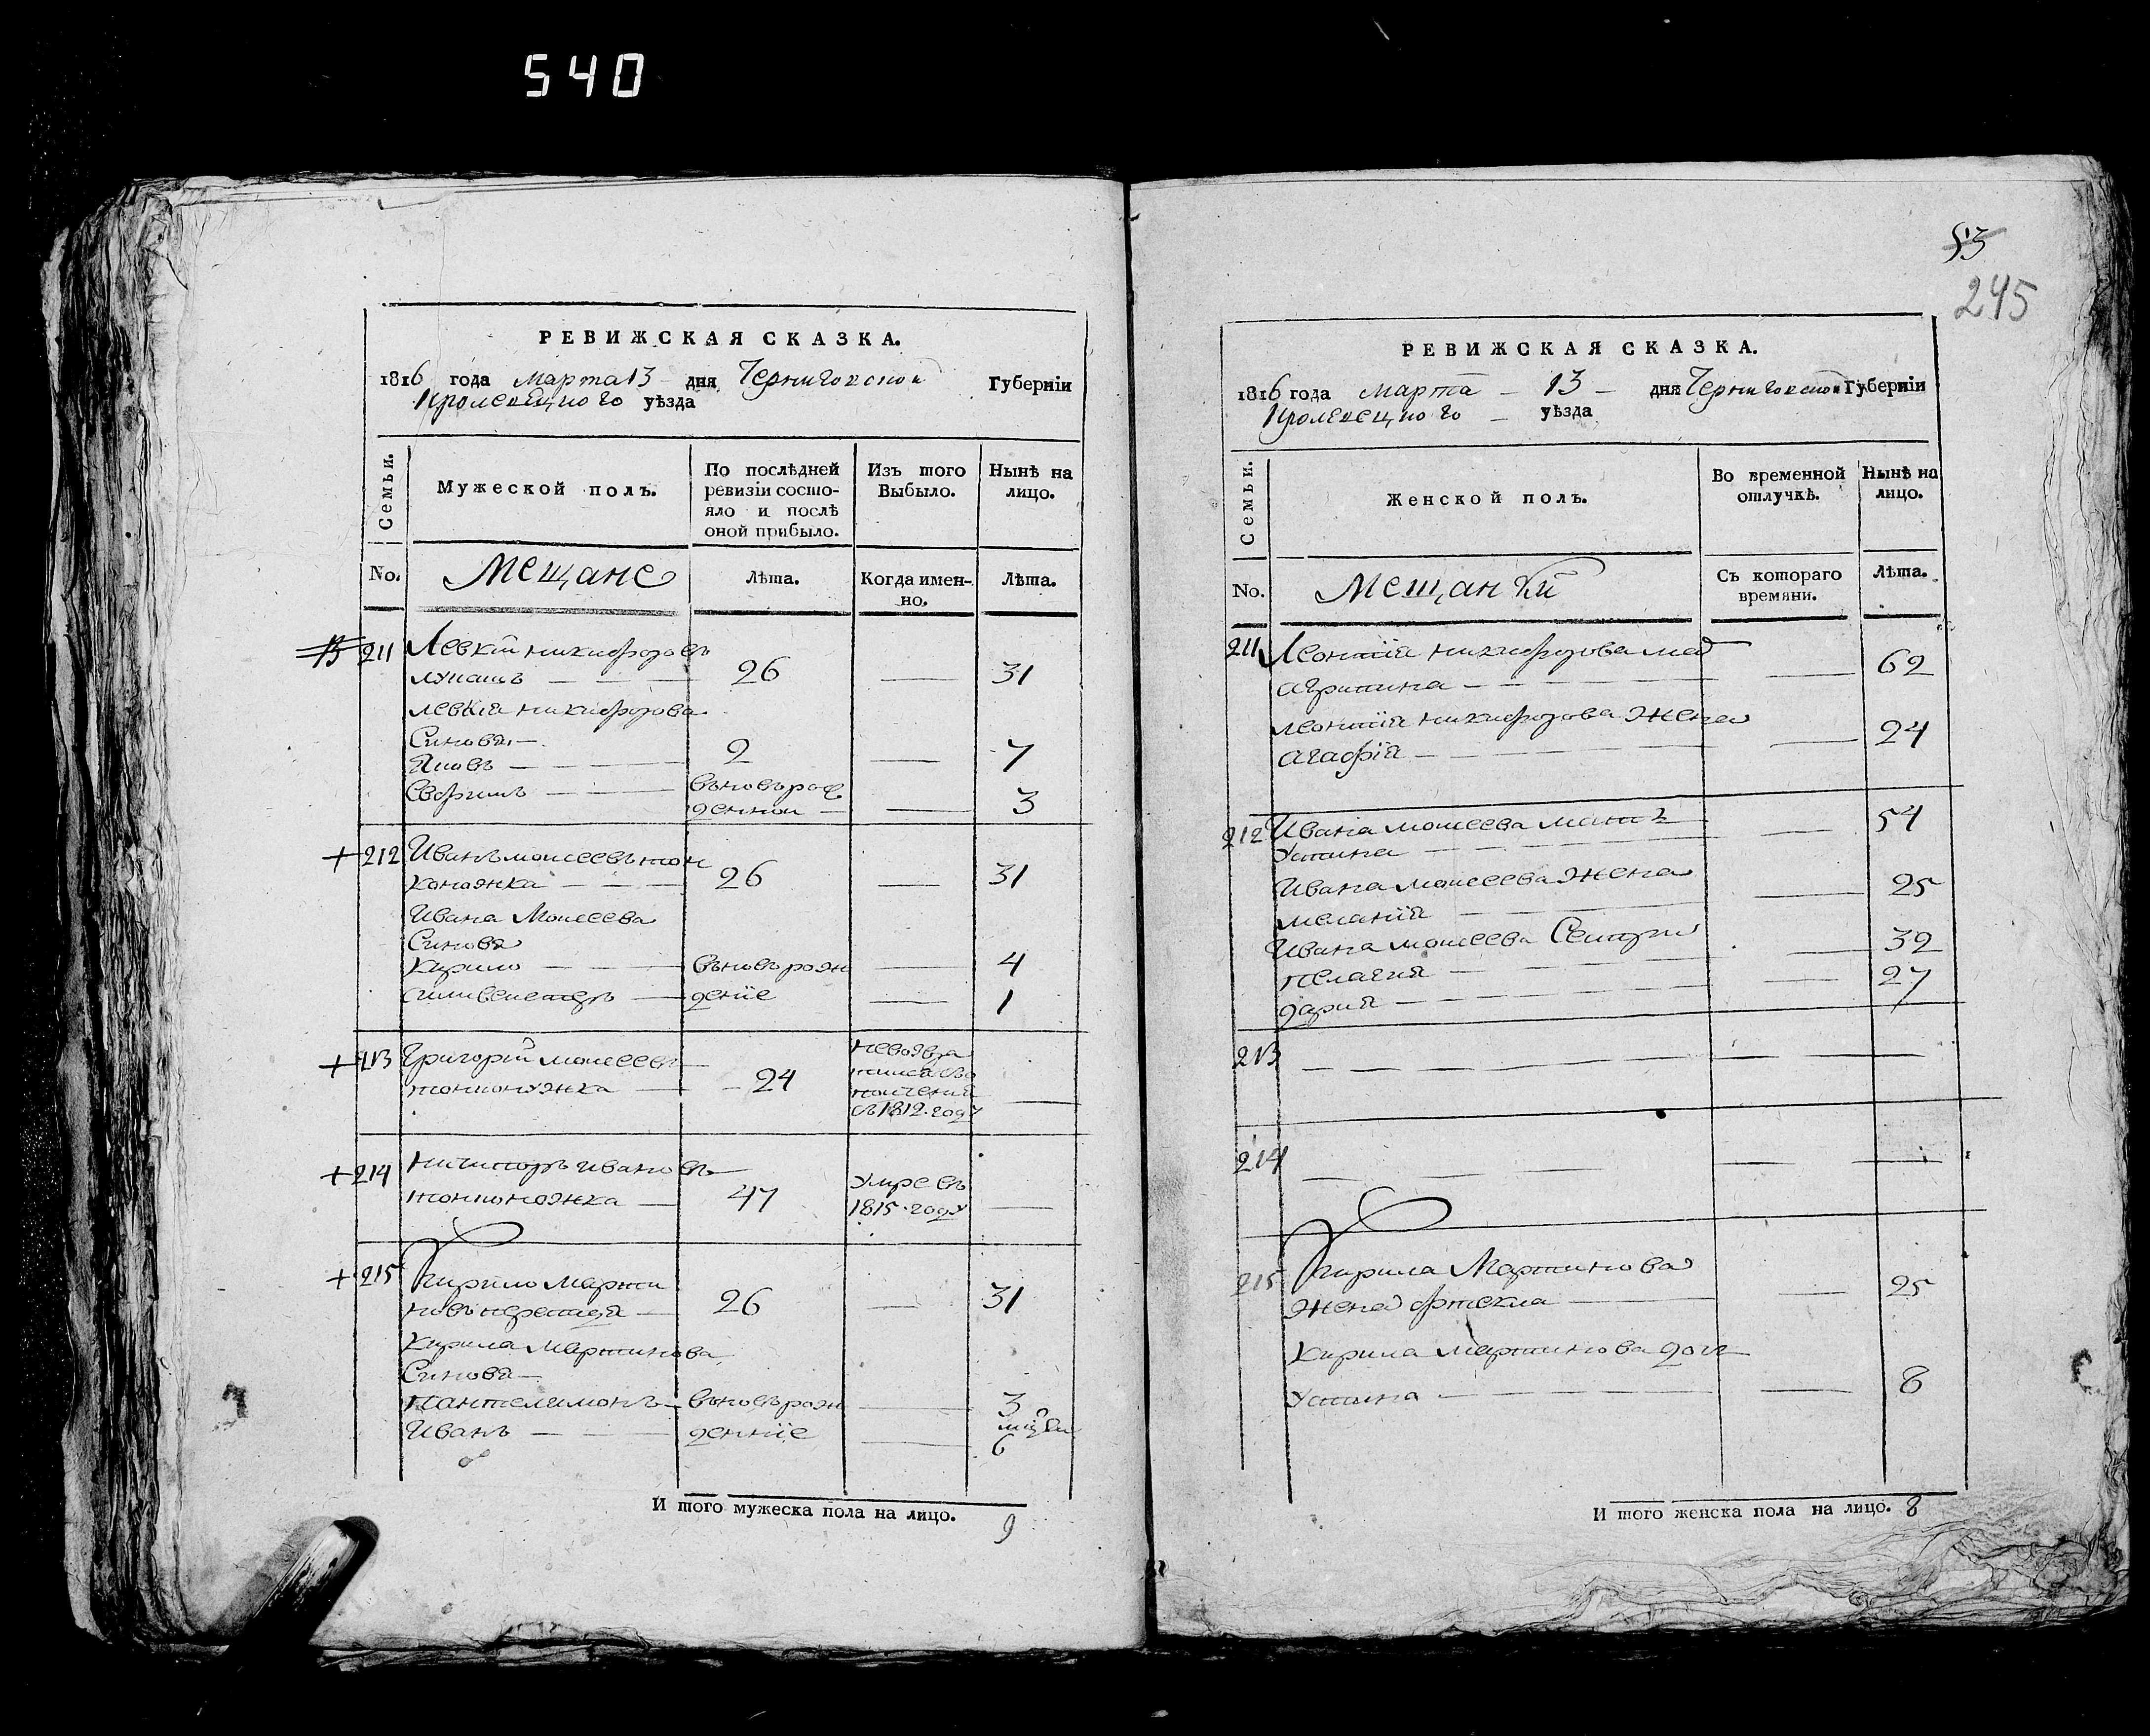 540
РЕВИЖСКАЯ СКАЗКА.
1816 года Марта 13 дня Черниговской Губерніи
Кролевецкого уѣзда
Семьи.
Мужеской полъ.
По послѣдней ревизіи состояло и послѣ оной прибыло.
Изъ того Выбыло.
Нынѣ на лицо.
No.
Мещане
Лѣта.
Когда именно.
Лѣта.
211 Левкій никифоровъ
26 31
левкія никифорова
Синовя
Яковъ 2 7
Ефимъ въновь рож
денной 3
+ 212 Иванъ моисеевъ
26 31
Ивана Моисеева
Синовя
Кирило въновъ рож 4
силивестеръ деніе 1
+ 213 Григорій моисеевъ
24
в 1812 году
+ 214 ничипоръ ивановъ
47 Умре въ
1815 году
+ 215 Кирило Марти
новъ 26 31
Кирила Мартинова
Синовя
Пантелимонъ въновъ рож 3
Иванъ денніе
6
И того мужеска пола на лицо. 9
53
245
РЕВИЖСКАЯ СКАЗКА.
1816 года Марта 13 дня Черниговской Губерніи
Кролевецкого уѣзда
Семьи.
Женской полъ.
Во временной отлучкѣ.
Нынѣ на лицо.
No.
Мещанки
Съ котораго времяни.
Лѣта.
211 Леонтія никифорова мат
агрипина 62
леонтія никифорова жена
агафія 24
212 Ивана моисеева мать 54
Устина
Ивана моисеева жена 25
меланія
Ивана моисеева Сестри
пелагия 32
дария 27
213
214
215 Кирила Мартинова
жена фтекла 25
Кирила мартинова доч
Устина 8
И того женска пола на лицо. 8